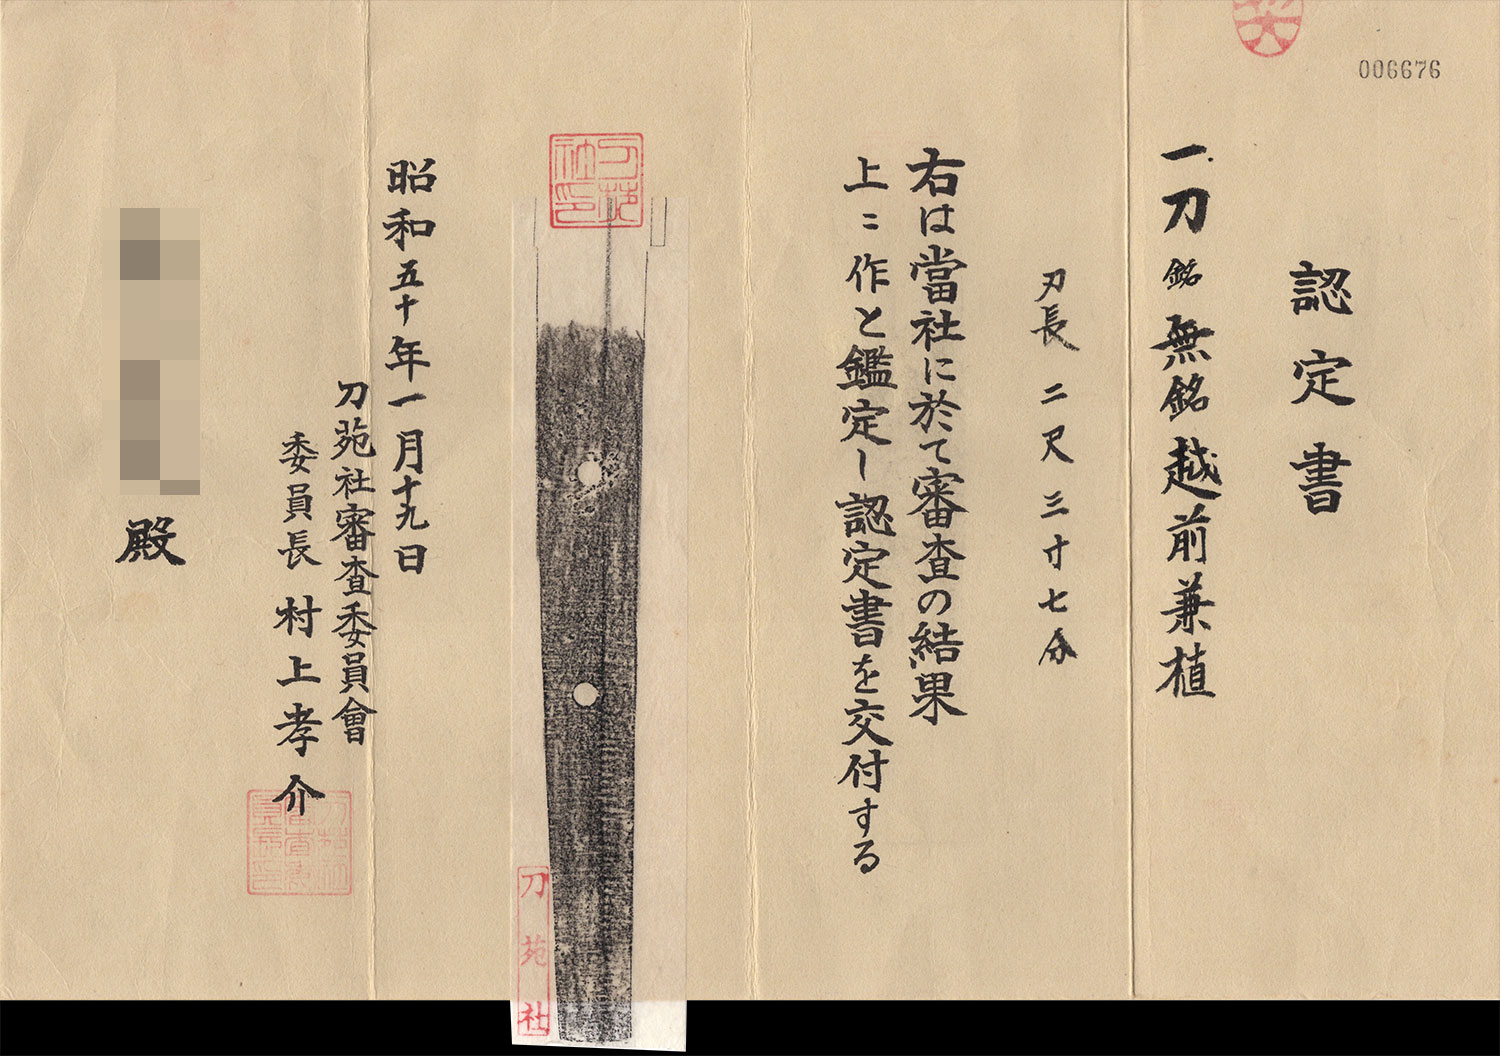 006676
認定書
一刀 銘 無銘 越前兼植
刃長 二尺三寸七分
右は當社に於て審査の結果
上ニ作と鑑定し認定書を交付する
刀苑社
昭和五十年一月十九日
刀苑社審査委員會
委員長 村上孝介
殿